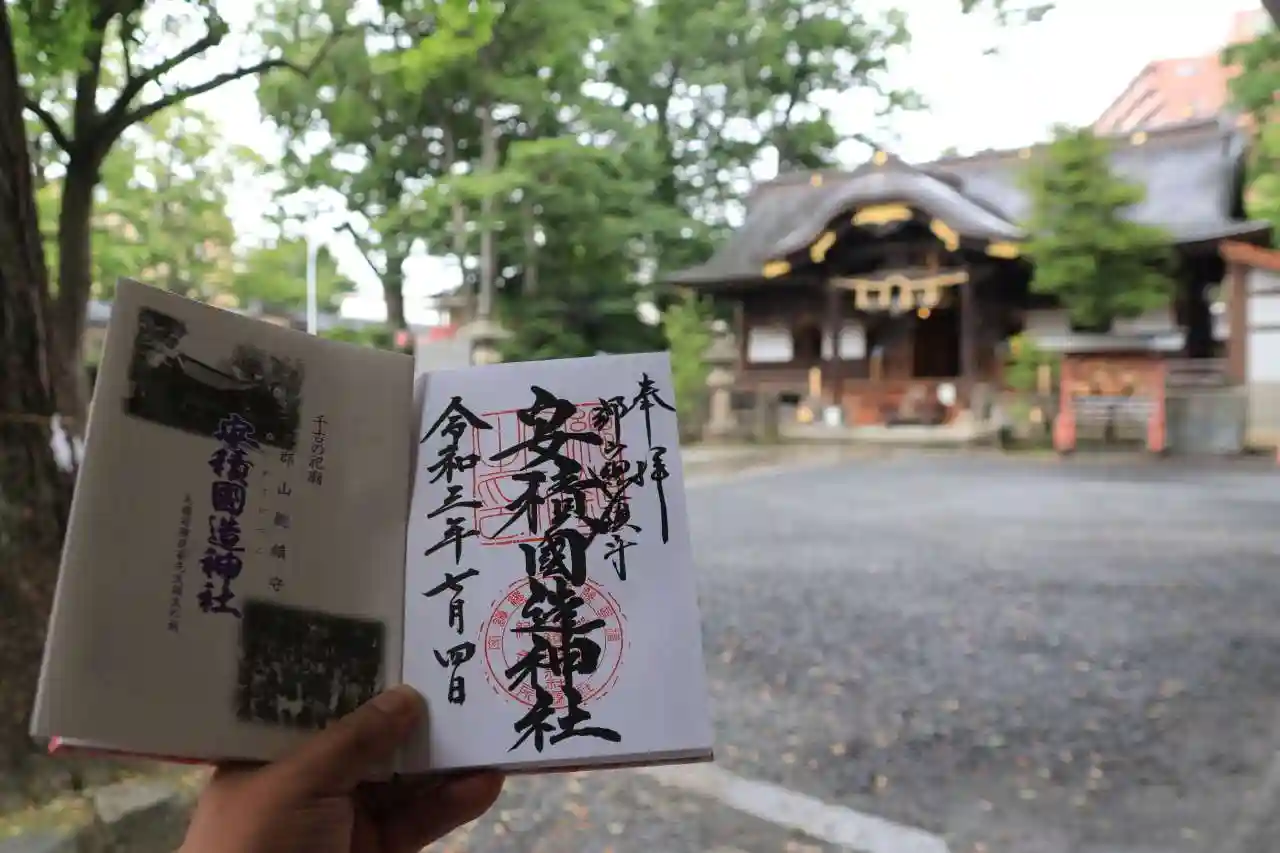 奉拝
郡山總鎮守
安積國造神社
令和三年七月四日
千古の祀廟
郡山総鎮守
安積國造神社